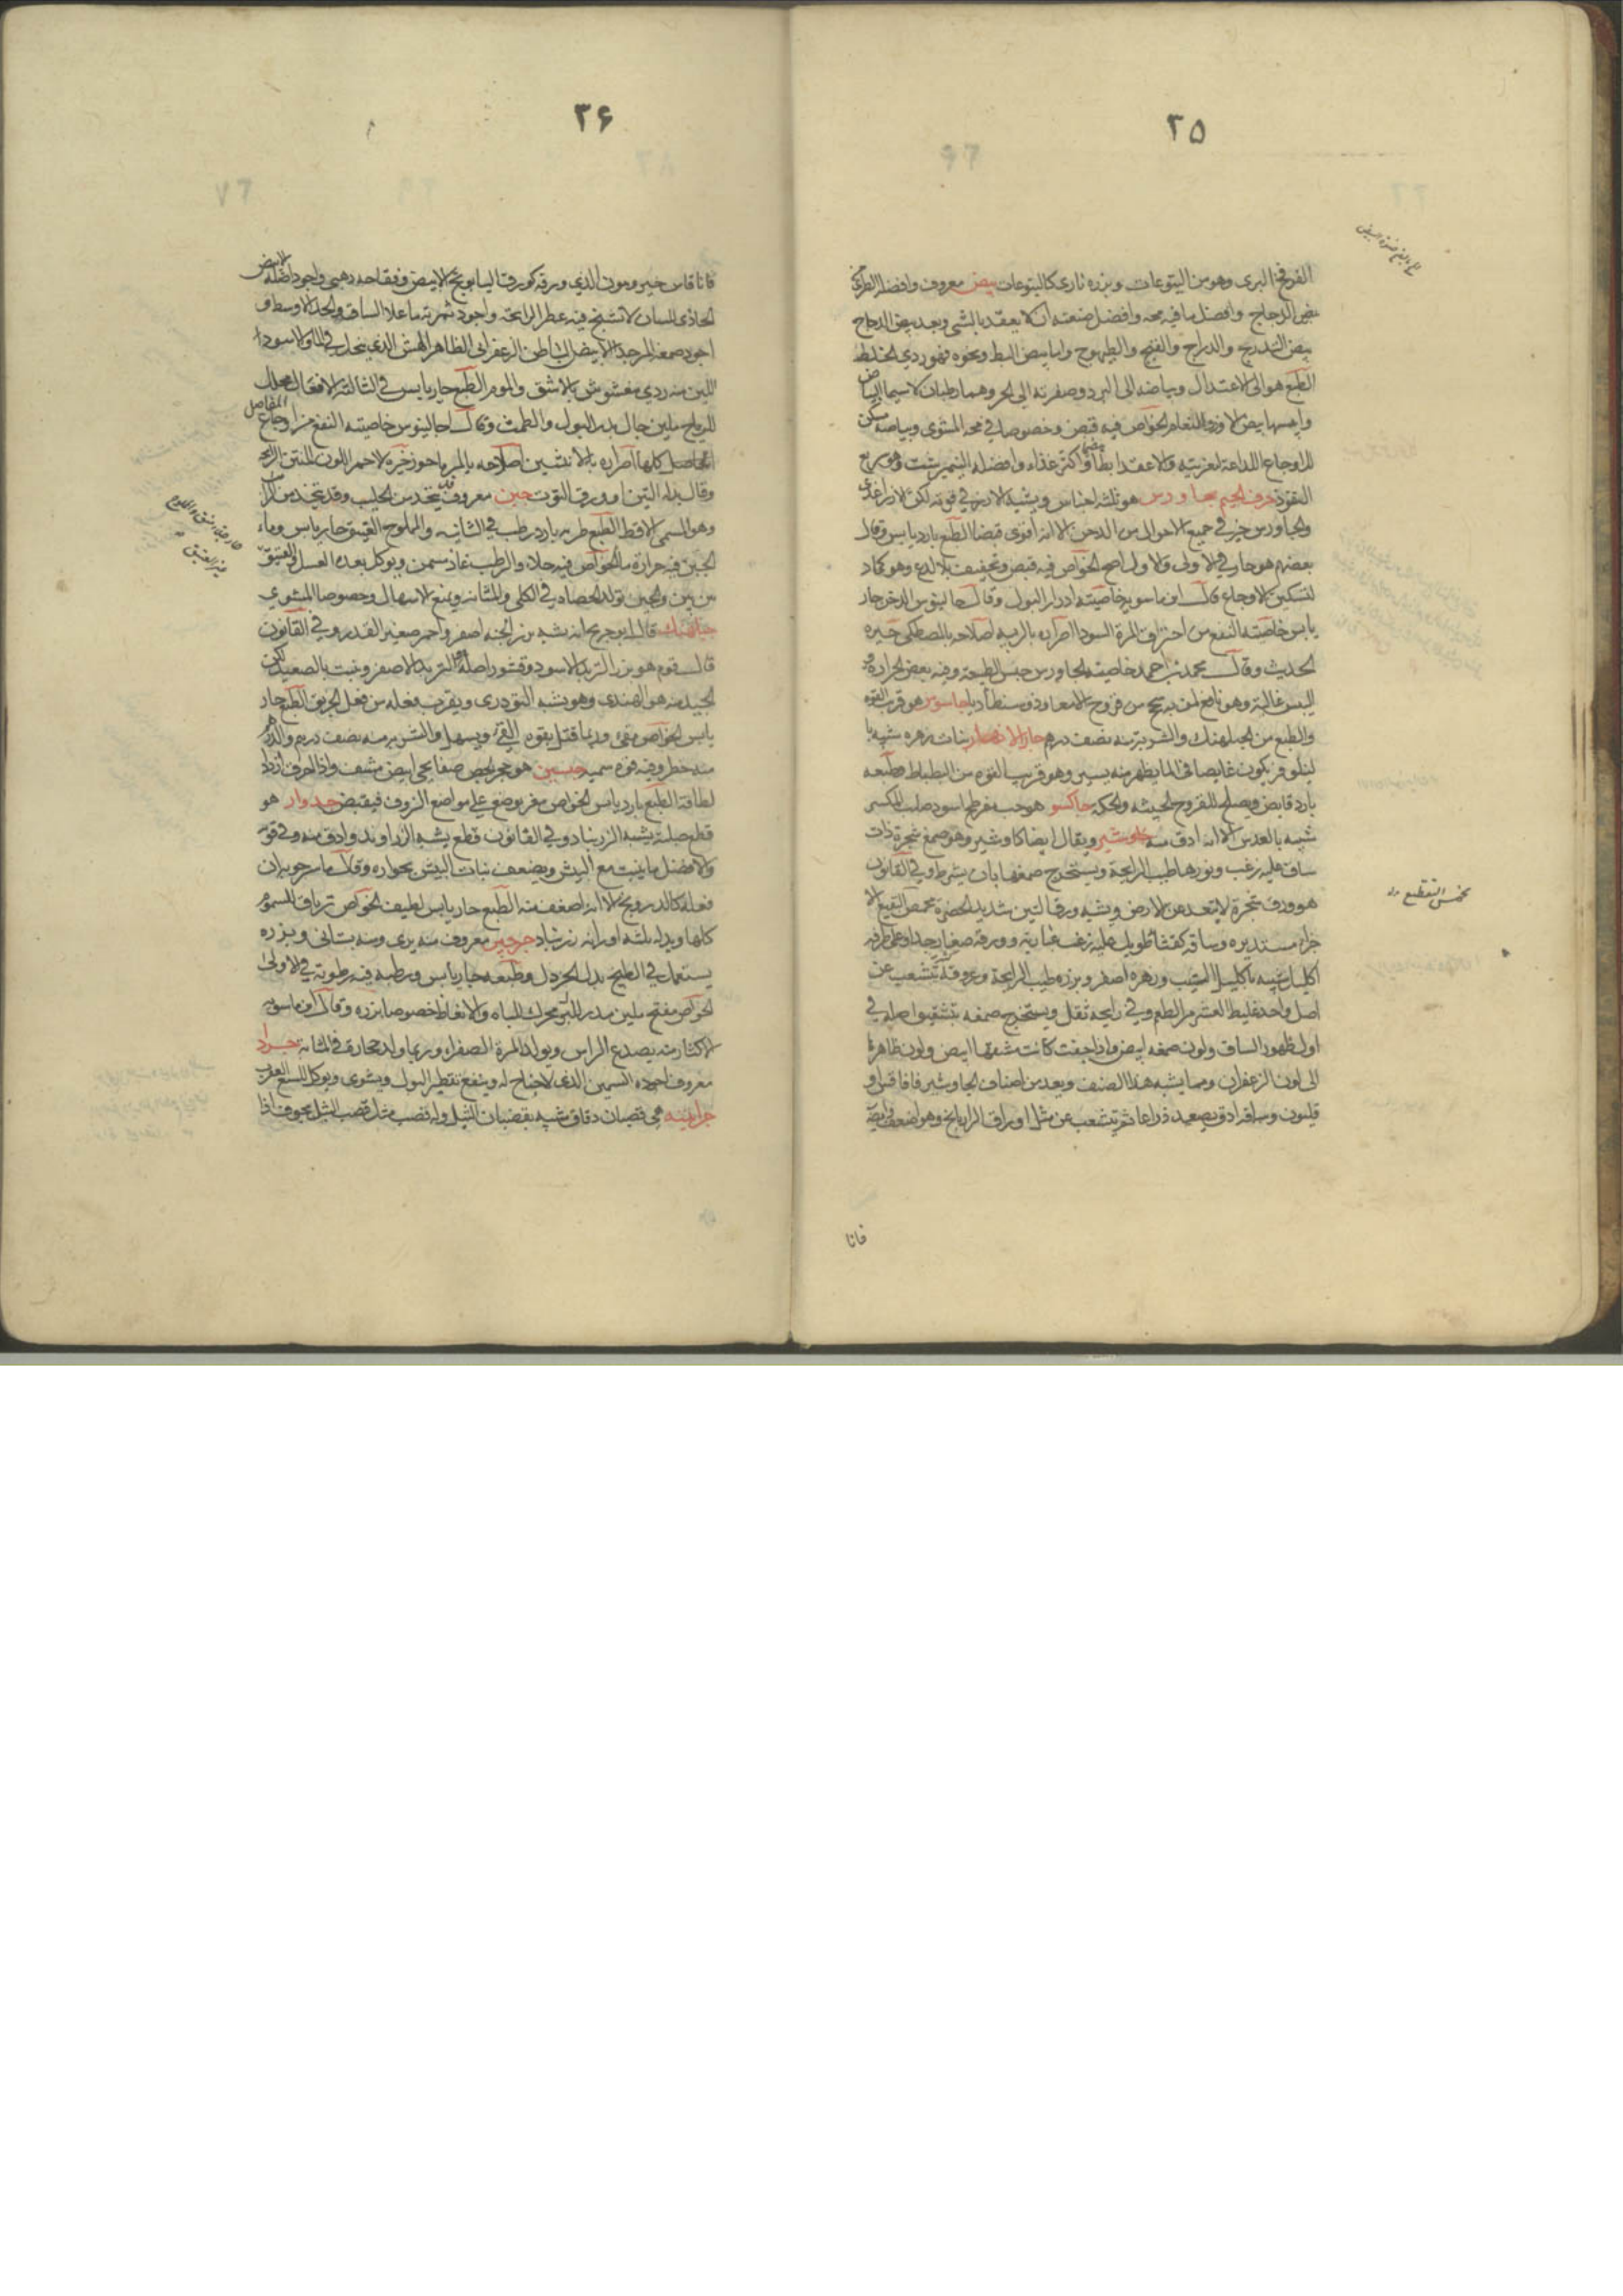 ۲۵
الفرفخ البرى وهو من اليتوعات وبزره نارى كاليتوعات بيض معروف وافضله الطرى من
بيض الدجاج وافضل ما فيه محه وافضل صنعته ان لا يعقد بالشى وبعد بيض الدجاج
بيض التدرج والدراج والقبج والطيهوج واما بيض البط ونحوه فهو ردى الخلط
الطبع هو الى الاعتدال وبياضه الى البرد وصفرته الى الحر وهما رطبان لا سيما البياض
وايبسها بيض الاوز والنعام الخواص فيه قبض وخصوصا فى محه المشوى وبياضه مسكن
للاوجاع اللذاعة لتغريته والاعقد ابطأ هضما واكثر غذاء وافضله النيمبرشت وهو سريع
النفوذ حرف الجيم جاورس هو ثلثه اجناس ويشبه الارز فى قوته لكن الارز اغذى
والجاورس خير فى جميع الاحوال من الدخن الا انه اقوى قبضا الطبع بارد يابس وقال
بعضهم هو حار فى الاولى والاول اصح الخواص فيه قبض وتجفيف بلا لذع وهو كماد
لتسكين الاوجاع قال ابن ماسويه خاصيته ادرار البول وقال جالينوس الدخن حار
يابس خاصيته النفع من احتراق المرة السودا اضراره بالرية اصلاحه بالمصطكى خيره
الحديث وقال محمد بن احمد خاصية الجاورس حبس الطبيعة وفيه بعض الحرارة و
اليبس غالبة وهو نافع لمن به سحج من قروح الامعا دوسنطاريا جاسوس هو قريب القوه
والطبع من الجبلهنك والشربة منه نصف درهم جار الانهار نبات زهره شبيه با
لنيلوفر يكون غايصا فى الما يظهر منه يسير وهو قريب القوه من البطباط وطبعه
بارد قابض ويصلح للقروح الخبيثه والحكه جاكسو هو حب مفرطح اسود صلب المكسر
شبيه بالعدس الا انه ادق منه جاوشير ويقال ايضا كاوشير وهو صمغ شجرة ذات
ساق عليه زغب ونورها طيب الرايحة ويستخرج صمغها بان يشرط وفى القانون
هو ورق شجرة لا تبعد عن الارض ويشبه ورق التين شديد الخضرة مخمص التقيع الا
جزاء مستديره وساقه كقثا طويل عليه زغب غبارية وورقه صغار جدا وعلى طرفه
اكليل شبيه باكليل الشبث وزهره اصفر وبزره طيب الرايحة وعروقه تتشعب عن
اصل واحد غليظ القشر مر الطعم وفى رايحته ثقل ويستخرج صمغه بتشقيق اصله فى
اول ظهور الساق ولون صمغه ابيض واذا جفت كانت شقتها ابيض ولون ظاهرها
الى لون الزعفران ومما يشبه هذا الصنف ويعد من اصناف الجاوشير فافاقس او
قليون وساقه ادق يصعد ذراعا ثم يتشعب عن مثل اوراق الرازيانج وهو اضعف رايحة
مخمس التقطيع
فانا
۲۶
فاناقاس خيرونيون الذى ورقه كورق البابونج الابيض وفقاحه ذهبى واجود اصله الابيض
الحاذى للسان لا تشنج فيه عطر الرايحة واجود ثمرته ما علا الساق والحد الاوسط و
اجود صمغه المر جدا الابيض الباطن الزعفرانى الظاهر الهش الذى ينحل فى الما والاسود
اللين منه ردى مغشوش بالاشق والموم الطبع حار يابس فى الثالثة الافعال محلل
للرياح ملين جال يدر البول والطمث وقال جالينوس خاصيته النفع من اوجاع المفاصل
كلها اضراره بالانثيين اصلاحه بالمر ماحوز خيره الاحمر اللون المنتن الرايحة
وقال بدله التين او ورق التوت جبن معروف قد يتخذ من الحليب وقد يتخذ من الرايب
وهو المسمى الاقط الطبع طريه بارد رطب فى الثانيه والمملوح العتيق حار يابس وماء
الجبن فيه حرارة ما الخواص فيه جلاء والرطب غاذ مسمن ويوكل بعده العسل والعتيق
من بين والجبن تولد الحصاة فى الكلى والمثانه ويمنع الاسهال وخصوصا المشوى
جبلهنك قال ابو جريح انه شبه بزر الجنه اصفر واحمر صغير القدر وفى القانون
قال قوم هو بزر التربد الاسود وقشور اصله التربد الاصفر ونبت بالصعيد لكن
الجيد منه هو الهندى وهو يشبه التودرى ويقرب فعله من فعل الخربق الطبع حار
يابس الخواص مقىء وربما قتل بقوه القىء ويسهل والشربه منه نصف درهم والدرهم
منه خطر وفيه قوه سميه جبسين هو حجر الجص صفايحى ابيض مشف واذا احرق ازداد
لطافة الطبع بارد يابس الخواص مغر يوضع على مواضع النزف فيقبض جدوار هو
قطع صلبة يشبه الزرنباد وفى القانون قطع يشبه الزراوند وادق منه وفى قوته
والافضل ما ينبت مع البيش ويضعف نبات البيش بجواره وقال ماسرجويه ان
فعله كالدرونج الا انه اضعف منه الطبع حار يابس لطيف الخواص ترياق للسموم
كلها وبدله ثلثه اوزانه زرنباد جرجير معروف منه برى ومنه بستانى وبزره
يستعمل فى الطبيخ بدل الخردل وطبعه حار يابس ورطبه فيه رطوبة فى الاولى
الخواص مفتح ملين مدر اللبن محرك للباه والانعاظ خصوصا بزره وقال ابن ماسويه
الاكثار منه يصدع الراس ويولد المرة الصفراء وربما ولد حجارة فى المثانة جراد
معروف اجوده السمين الذى لا جناح له وينفع تقطير البول ويشوى ويوكل للسع العقرب
جرابينه هى قضبان دقاق شبيه بقضبان الشبل وله قصب مثل قصب الشبل مجوف اذا